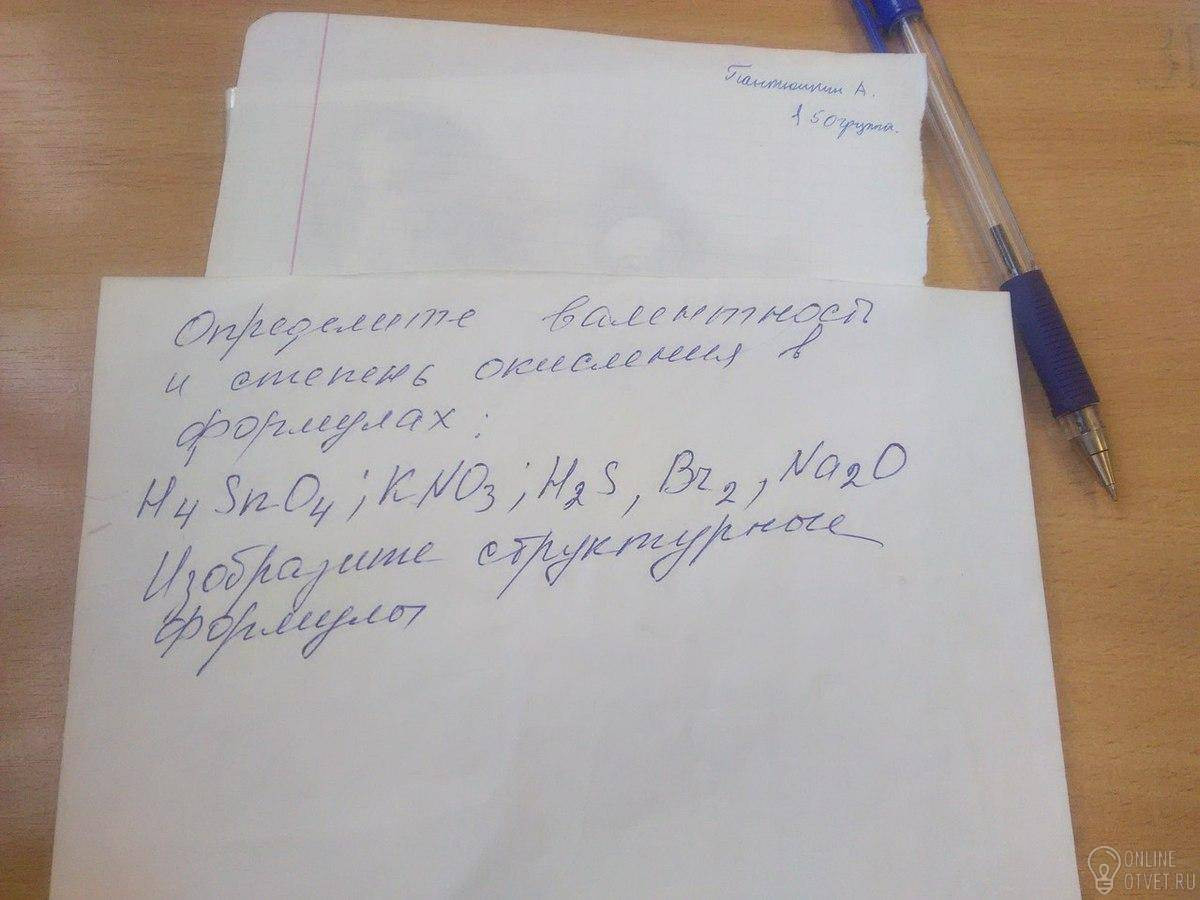 Пантюшин А.
150 группа.
Определите валентность
и степень окисления в
формулах:
H₄SnO₄; KNO₃; H₂S, Br₂, Na₂O
Изобразите структурные
формулы
ONLINE
OTVET.RU